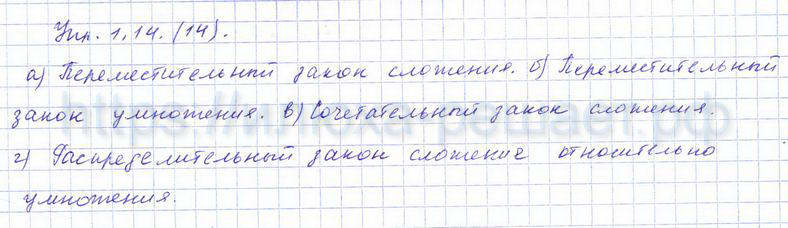 Упр. 1.14. (14).
а) Переместительный закон сложения. б) Переместительный
закон умножения. в) Сочетательный закон сложения.
г) Распределительный закон сложение относительно
умножения.